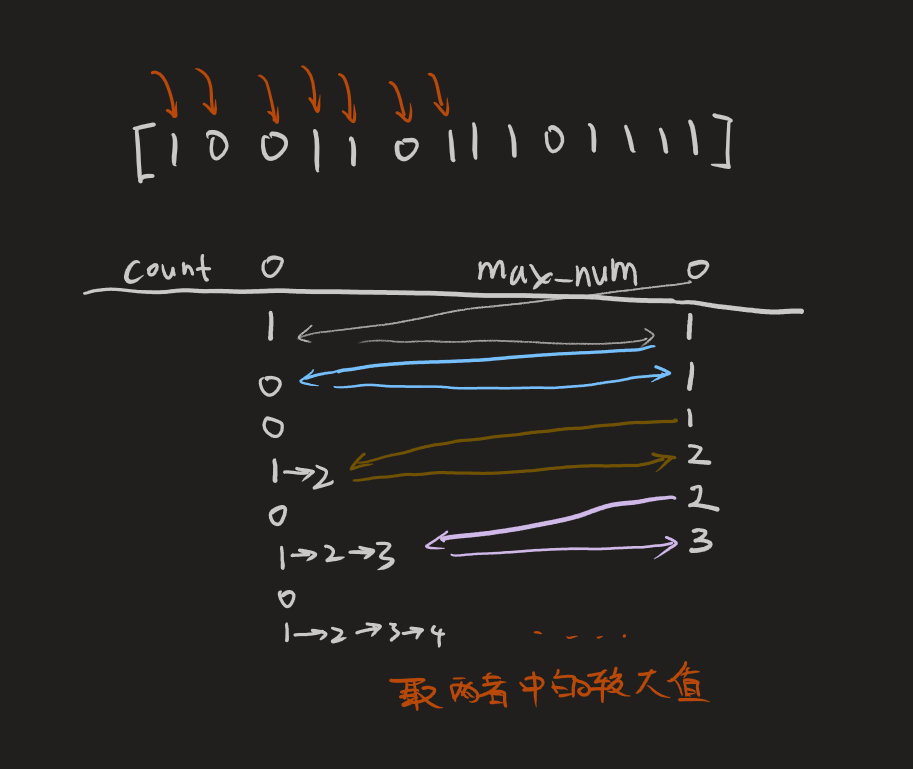 [1 0 0 1 1 0 1 1 1 0 1 1 1 1]
count 0 max_num 0
1 1
0 1
0 1
1→2 2
0 2
1→2→3 3
0
1→2→3→4 ......
取两者中的较大值